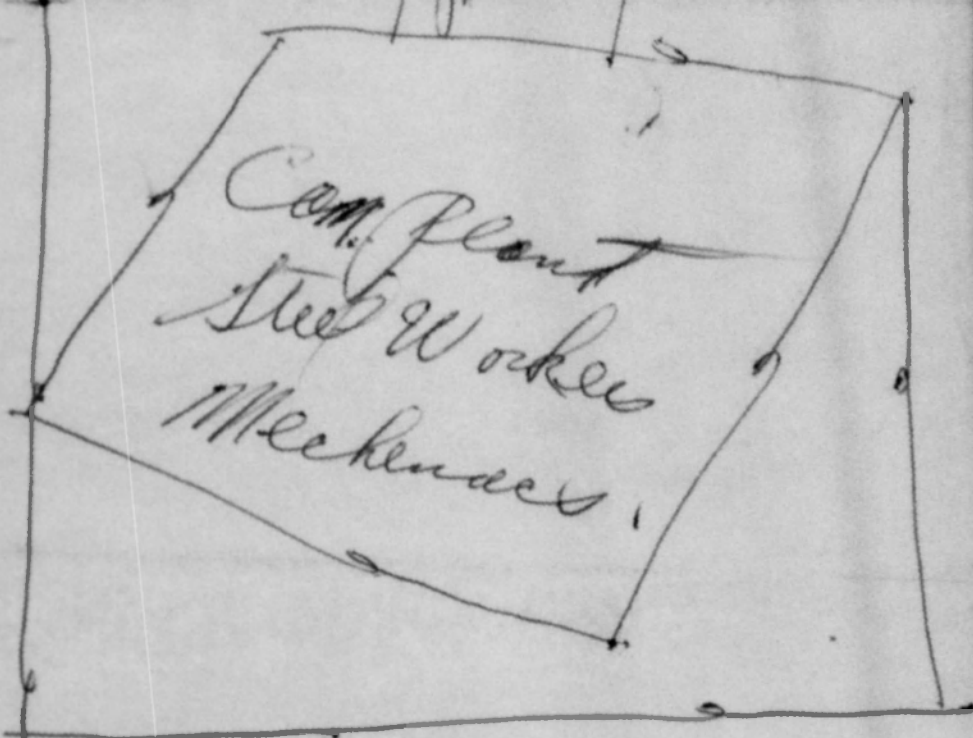 Com. Plant
Steel Workers
Mechenacs.